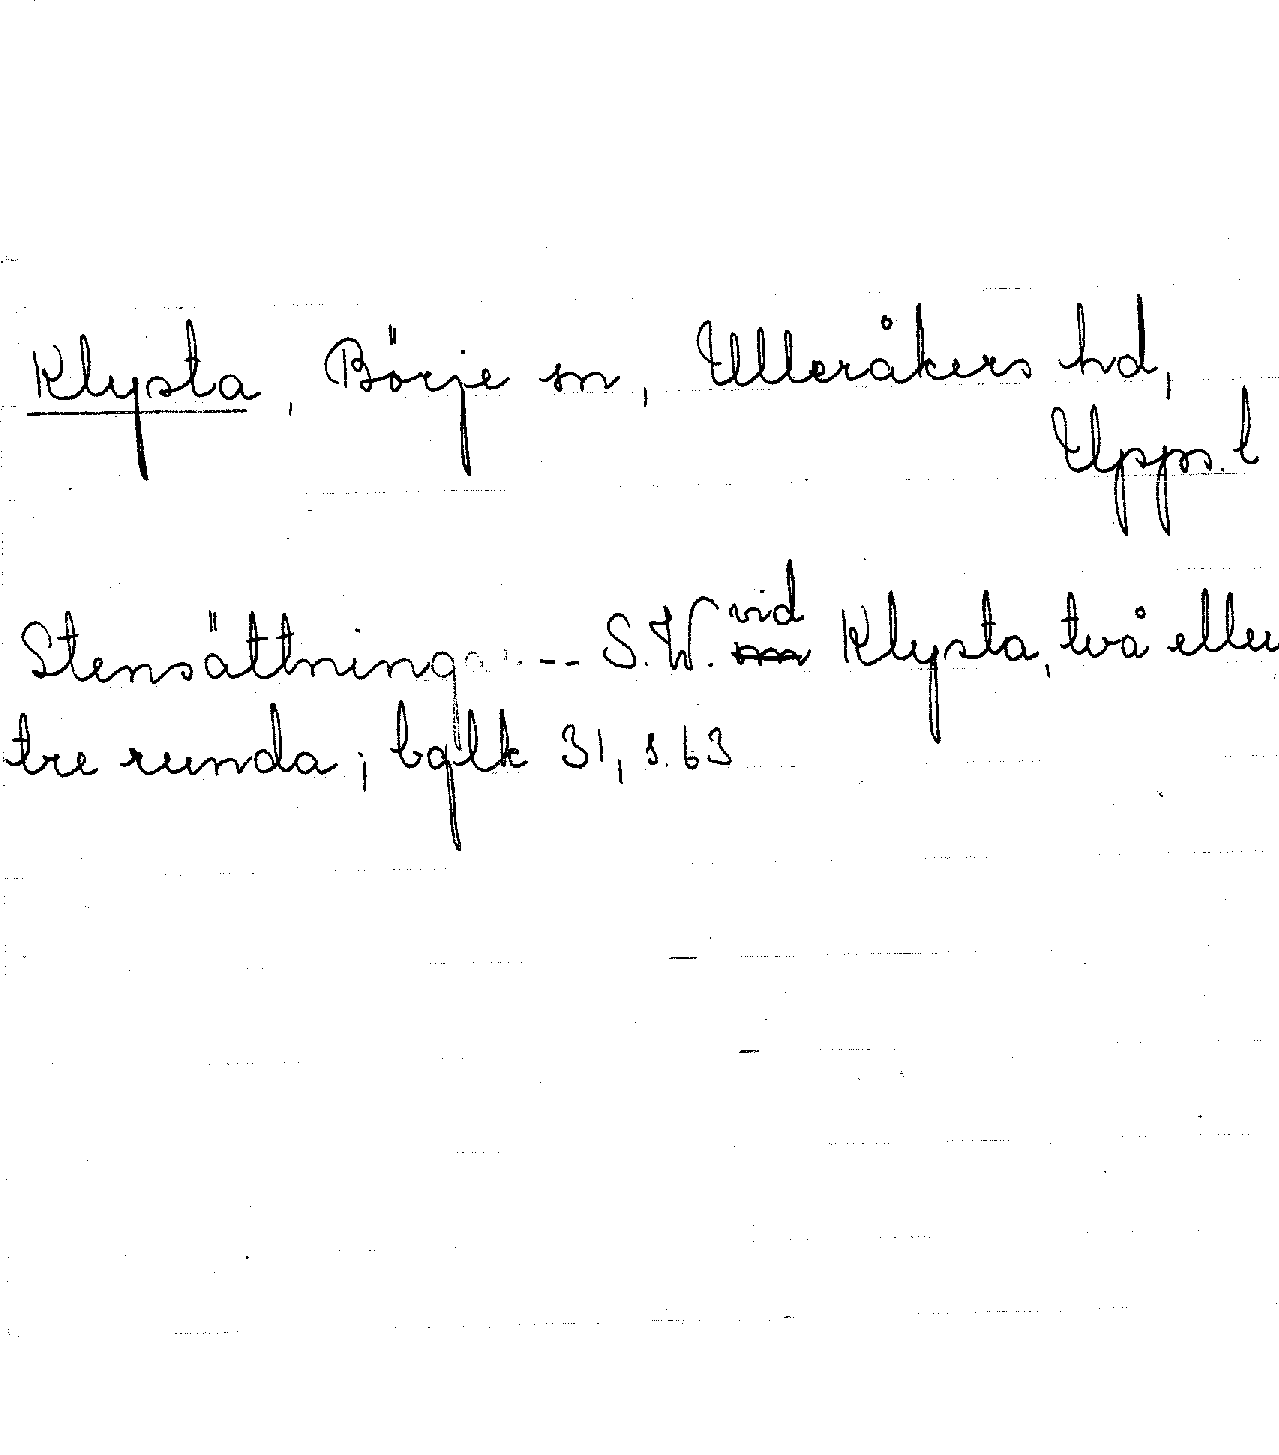 Klysta, Börje sn, Ulleråkers hd,
Upps. l
Stensättningar --- S.W. vid Klysta, två eller
tre runda; balk 31, s. 63